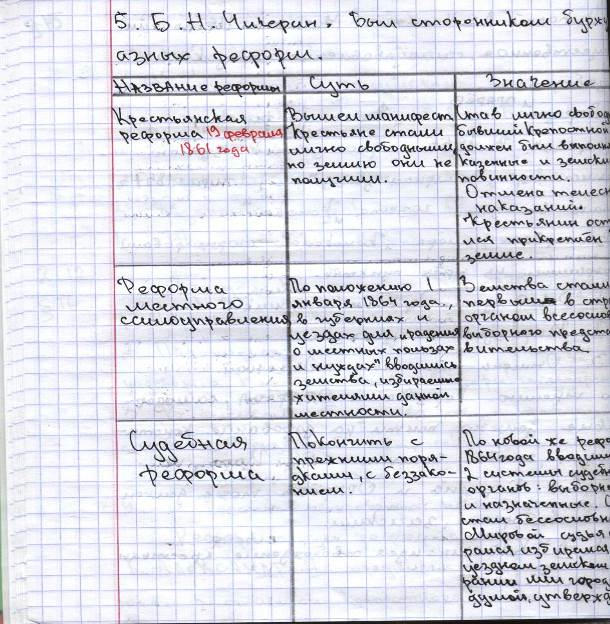 5. Б.Н. Чичерин. Был сторонником буржу
азных реформ.
Название реформы Суть Значение
Крестьянская
реформа 19 февраля
1861 года
Вышел манифест
Крестьяне стали
лично свободными,
но землю они не
получили.
Став лично свобод
бывший крепостной
должен был выполн
казенные и земски
повинности.
Отмена телесн
наказаний.
Крестьянин ост
лся прикреплён
земле.
Реформа
местного
самоуправления
По положению 1
января 1864 года,
в губерниях и
уездах для „радения
о местных пользах
и нуждах" вводились
земства, избираемые
жителями данной
местности.
Земства стали
первым в стр
органом всесосло
выборного предста
вительства.
Судебная
реформа.
Покончить с
прежними поря-
дками, с беззако-
нием.
По новой же рефо
1864 года вводили
2 системы судебн
органов: выборны
и назначенные.
стал бессословн
Мировой судья
рался избирался
уездном земском
рании или город
думой, утвержд